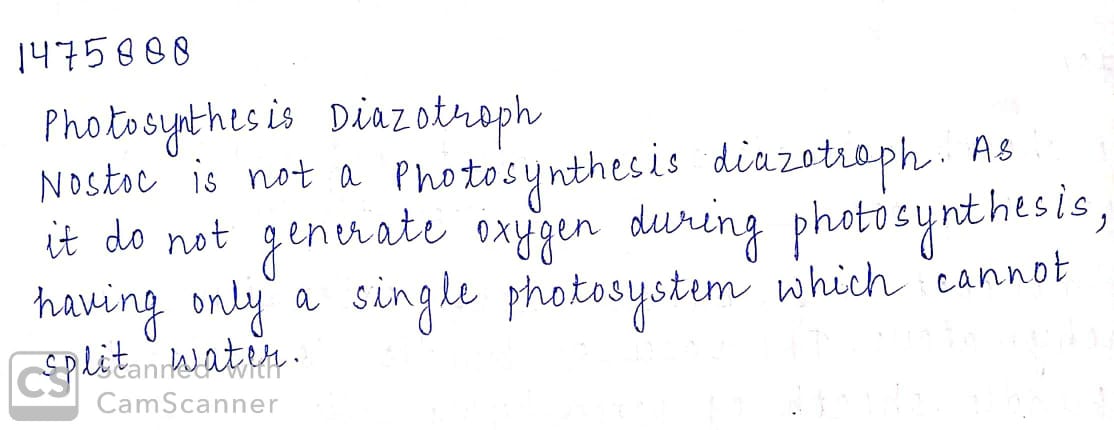 1475888
Photosynthesis Diazotroph
Nostoc is not a Photosynthesis diazotroph. As
it do not generate oxygen during photosynthesis,
having only a single photosystem which cannot
split water.
CS Scanned with
CamScanner